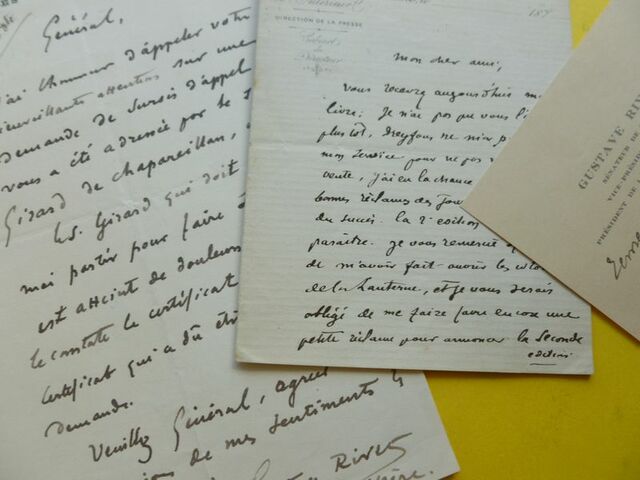 Général,
J'ai l'honneur d'appeler votre
bienveillante attention sur une
demande de sursis d'appel
vous a été adressée par le
Girard de Chapareillan,
M. Girard qui doit
mai partir pour faire
est atteint de douleurs
le constate le certificat
certificat qui a dû être
demande.
Veuillez Général, agréer
de mes sentiments
Rivet
DIRECTION DE LA PRESSE
187
Mon cher ami,
Vous recevez aujourd'hui
livre; Je n'ai pas pu vous
plus tôt, Dreyfous ne m'a
mon service pour ne pas
vente, j'ai eu la chance
bonnes réclames des Jou
du succès. la 2e édition
paraître. je vous remercie
de m'avoir fait ouvrir les colo
de la Lanterne, et je vous serais
obligé de me faire faire encore une
petite réclame pour annoncer la seconde
édition
GUSTAVE RIV
SÉNATEUR DE
VICE-PRÉSI
PRÉSIDENT DE